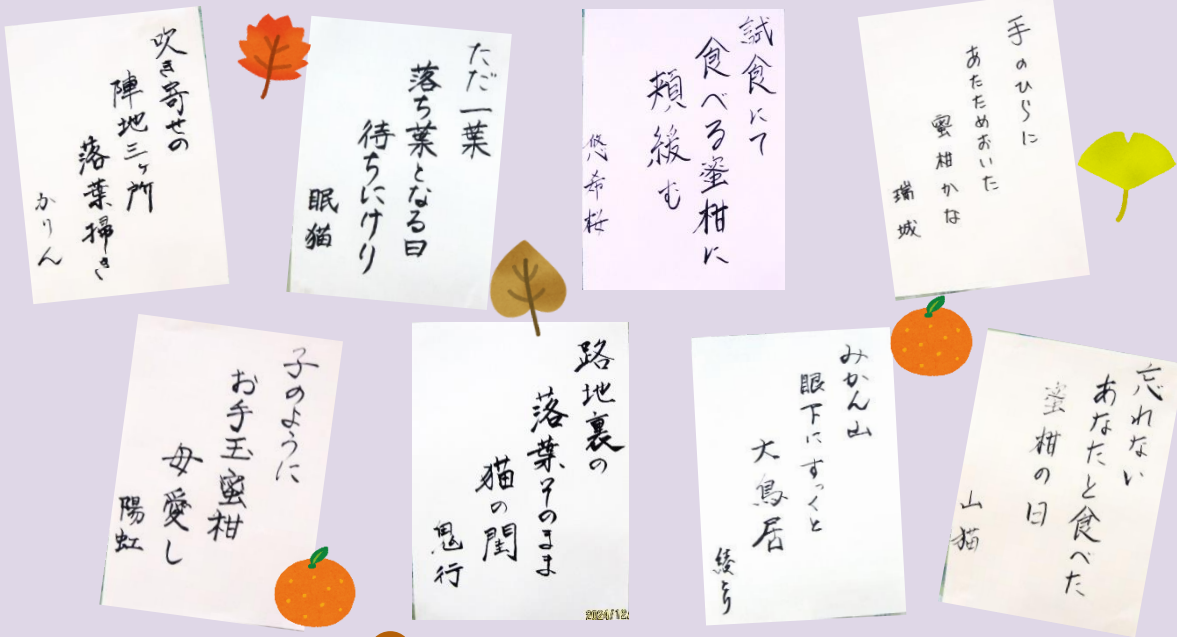 吹き寄せの
陣地三ヶ所
落葉掃き
かりん
ただ一葉
落ち葉となる日
待ちにけり
眠猫
試食にて
食べる蜜柑に
頬緩む
悠希桜
手のひらに
あたためおいた
蜜柑かな
瑞城
子のように
お手玉蜜柑
母愛し
陽虹
路地裏の
落葉そのまま
猫の閨
鬼行
みかん山
眼下にすっくと
大鳥居
綾とり
忘れない
あなたと食べた
蜜柑の日
山猫
2024/12